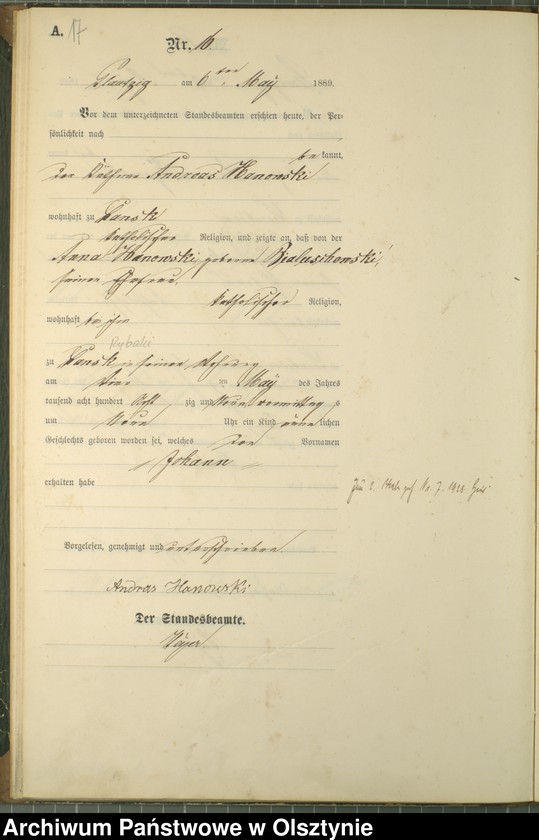 A. 17
Nr. 16.
am 6ten May 1889.
Vor dem unterzeichneten Standesbeamten erschien heute, der Per-
sönlichkeit nach
be kannt,
der Andreas Hanowski
wohnhaft zu Lansk
katholischer Religion, und zeigte an, daß von der
Anna Hanowski geborene Bialuschewski,
seiner Ehefrau,
katholischer Religion,
wohnhaft bei ihm
Rybaki
zu Lansk in seiner Wohnung
am im May des Jahres
tausend acht hundert acht zig und neun vormittag s
um neun Uhr ein Kind männ lichen
Geschlechts geboren worden sei, welches den Vornamen
Johann
erhalten habe
Vorgelesen, genehmigt und unterschrieben
Andras Hanowski
Der Standesbeamte.
Archiwum Państwowe w Olsztynie